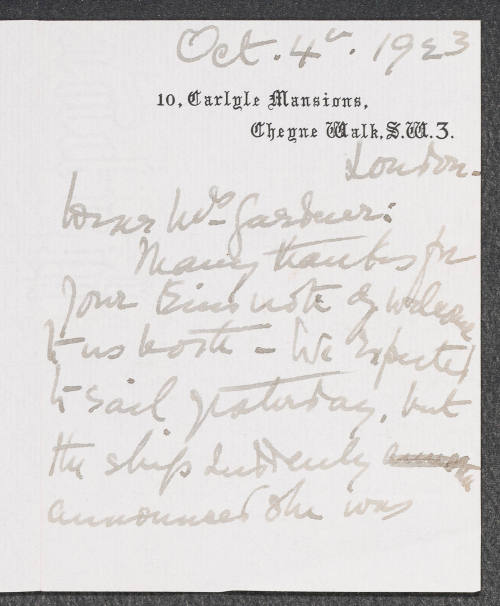 Oct. 4th. 1923
10, Carlyle Mansions,
Cheyne Walk, S.W.3.
London.
Dear Mrs Gardner:
Many thanks for
your kind note of welcome
to us both – We expected
to sail yesterday, but
the ship suddenly
announced she was